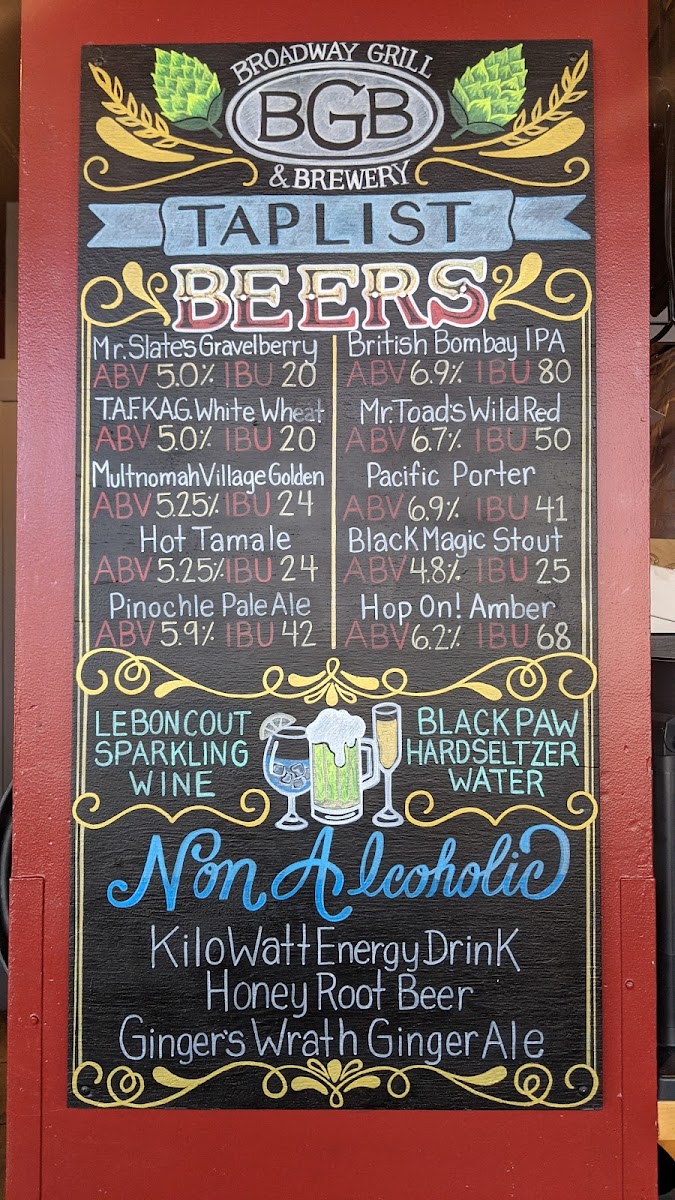 BROADWAY GRILL
BGB
& BREWERY
TAPLIST
BEERS
Mr. Slate's Gravelberry
ABV 5.0% IBU 20
T.A.F.K.A.G. White Wheat
ABV 5.0% IBU 20
Multnomah Village Golden
ABV 5.25% IBU 24
Hot Tamale
ABV 5.25% IBU 24
Pinochle Pale Ale
ABV 5.9% IBU 42
British Bombay IPA
ABV 6.9% IBU 80
Mr. Toad's Wild Red
ABV 6.7% IBU 50
Pacific Porter
ABV 6.9% IBU 41
Black Magic Stout
ABV 4.8% IBU 25
Hop On! Amber
ABV 6.2% IBU 68
LE BONCOUT
SPARKLING
WINE
BLACK PAW
HARD SELTZER
WATER
Non Alcoholic
KiloWatt Energy Drink
Honey Root Beer
Ginger's Wrath Ginger Ale